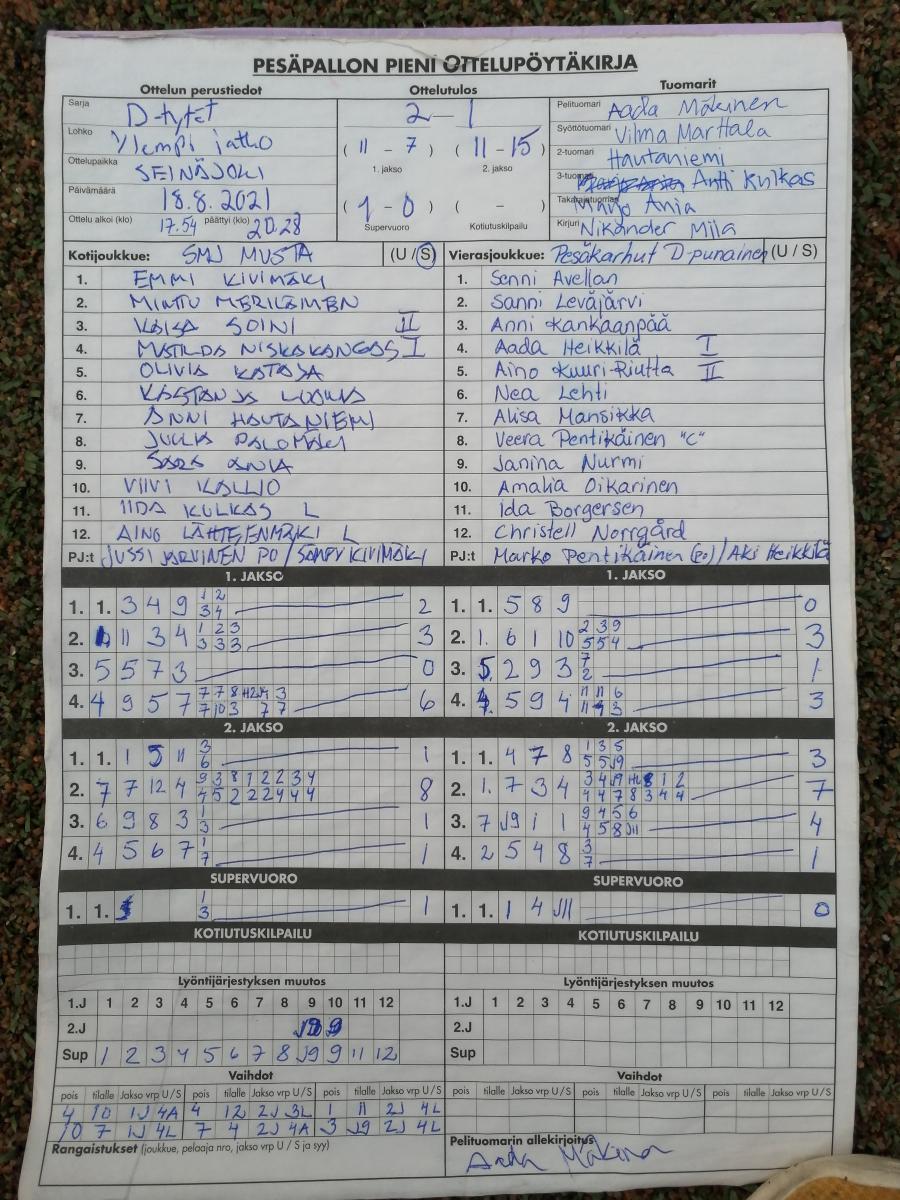 PESÄPALLON PIENI OTTELUPÖYTÄKIRJA
Ottelun perustiedot Ottelutulos Tuomarit
Sarja D-tytöt
Lohko Ylempi jatko
Ottelupaikka SEINÄJOKI
Päivämäärä 18.8.2021
Ottelu alkoi (klo) 17.54 päättyi (klo) 20.28
2-1
( 11 - 7 ) ( 11 - 15 )
1. jakso 2. jakso
( 1 - 0 ) ( - )
Supervuoro Kotiutuskilpailu
Pelituomari Aada Mäkinen
Syöttötuomari Vilma Marttala
2-tuomari Hautaniemi
3-tuomari Antti Kulkas
Takarajatuomari Marjo Ania
Kirjuri Nikander Mila
Kotijoukkue: SMJ MUSTA (U / S)
1. EMMI KIVIMÄKI
2. MINTTU MERILÄINEN
3. KAISA SOINI II
4. MATILDA NISKAKANGAS I
5. OLIVIA KATAJA
6.
7. ANNI HAUTANIEMI
8. JULIA PALOMÄKI
9. SARA ANIA
10. VIIVI KALLIO
11. IIDA KULKAS L
12. AINO LÄHTEENMÄKI L
PJ:t JUSSI JÄRVINEN PO / KIVIMÄKI
Vierasjoukkue: Pesäkarhut D-punainen (U / S)
1. Senni Avellan
2. Sanni Leväjärvi
3. Anni Kankaanpää
4. Aada Heikkilä I
5. Aino Kuuri-Riutta II
6. Nea Lehti
7. Alisa Mansikka
8. Veera Pentikäinen "C"
9. Janina Nurmi
10. Amalia Oikarinen
11. Ida Borgersen
12. Christell Norrgård
PJ:t Marko Pentikäinen (po) / Aki Heikkilä
1. JAKSO
1. 1. 3 4 9 1 2 2
3 4
2. 11 3 4 1 2 3 3
3 3 3
3. 5 5 7 3 0
4. 4 9 5 7 6
1. JAKSO
1. 1. 5 8 9 0
2. 1. 6 1 10 2 3 9 3
5 5 4
3. 5 2 9 3 7 1
2
4. 4. 5 9 4 11 11 6 3
2. JAKSO
1. 1. 1 5 11 3 1
6
2. 7 7 12 4 9 3 8 1 2 2 3 4 8
4 5 2 2 2 4 4 4
3. 6 9 8 3 1 1
3
4. 4 5 6 7 1 1
7
2. JAKSO
1. 1. 4 7 8 1 3 5 3
5 5 J9
2. 1. 7 3 4 7
4 4 7 8 3 4 4
3. 7 J9 1 1 9 4 5 6 4
4 5 8 J11
4. 2 5 4 8 3 1
7
SUPERVUORO
1. 1. 1 1
3
SUPERVUORO
1. 1. 1 4 0
KOTIUTUSKILPAILU
KOTIUTUSKILPAILU
Lyöntijärjestyksen muutos
1.J 1 2 3 4 5 6 7 8 9 10 11 12
2.J J9 9
Sup 1 2 3 4 5 6 7 8 J9 9 11 12
Lyöntijärjestyksen muutos
1.J 1 2 3 4 5 6 7 8 9 10 11 12
2.J
Sup
Vaihdot
pois tilalle Jakso vrp U / S pois tilalle Jakso vrp U / S pois tilalle Jakso vrp U / S
4 10 1J 4A 4 12 2J 3L 1 11 2J 4L
10 7 1J 4L 7 4 2J 4A 3 J9 2J 4L
Vaihdot
pois tilalle Jakso vrp U / S pois tilalle Jakso vrp U / S pois tilalle Jakso vrp U / S
Rangaistukset (joukkue, pelaaja nro, jakso vrp U / S ja syy)
Pelituomarin allekirjoitus
Aada Mäkinen